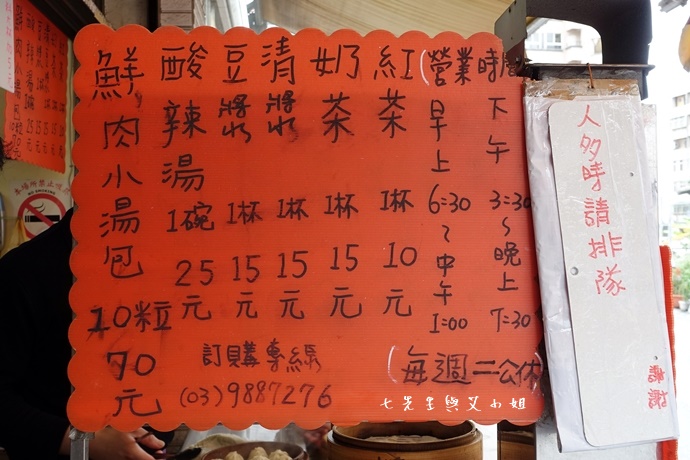 鮮肉小湯包 10粒 70元
酸辣湯 1碗 25元
豆漿 1杯 15元
清漿 1杯 15元
奶茶 1杯 15元
紅茶 1杯 10元
(營業時間
早上 6:30~中午 1:00
下午 3:30~晚上 7:30
(每週二公休)
訂購專線
(03)9887276
人多時請排隊
謝謝
七先生與艾小姐
本場所禁止吸菸
NO SMOKING